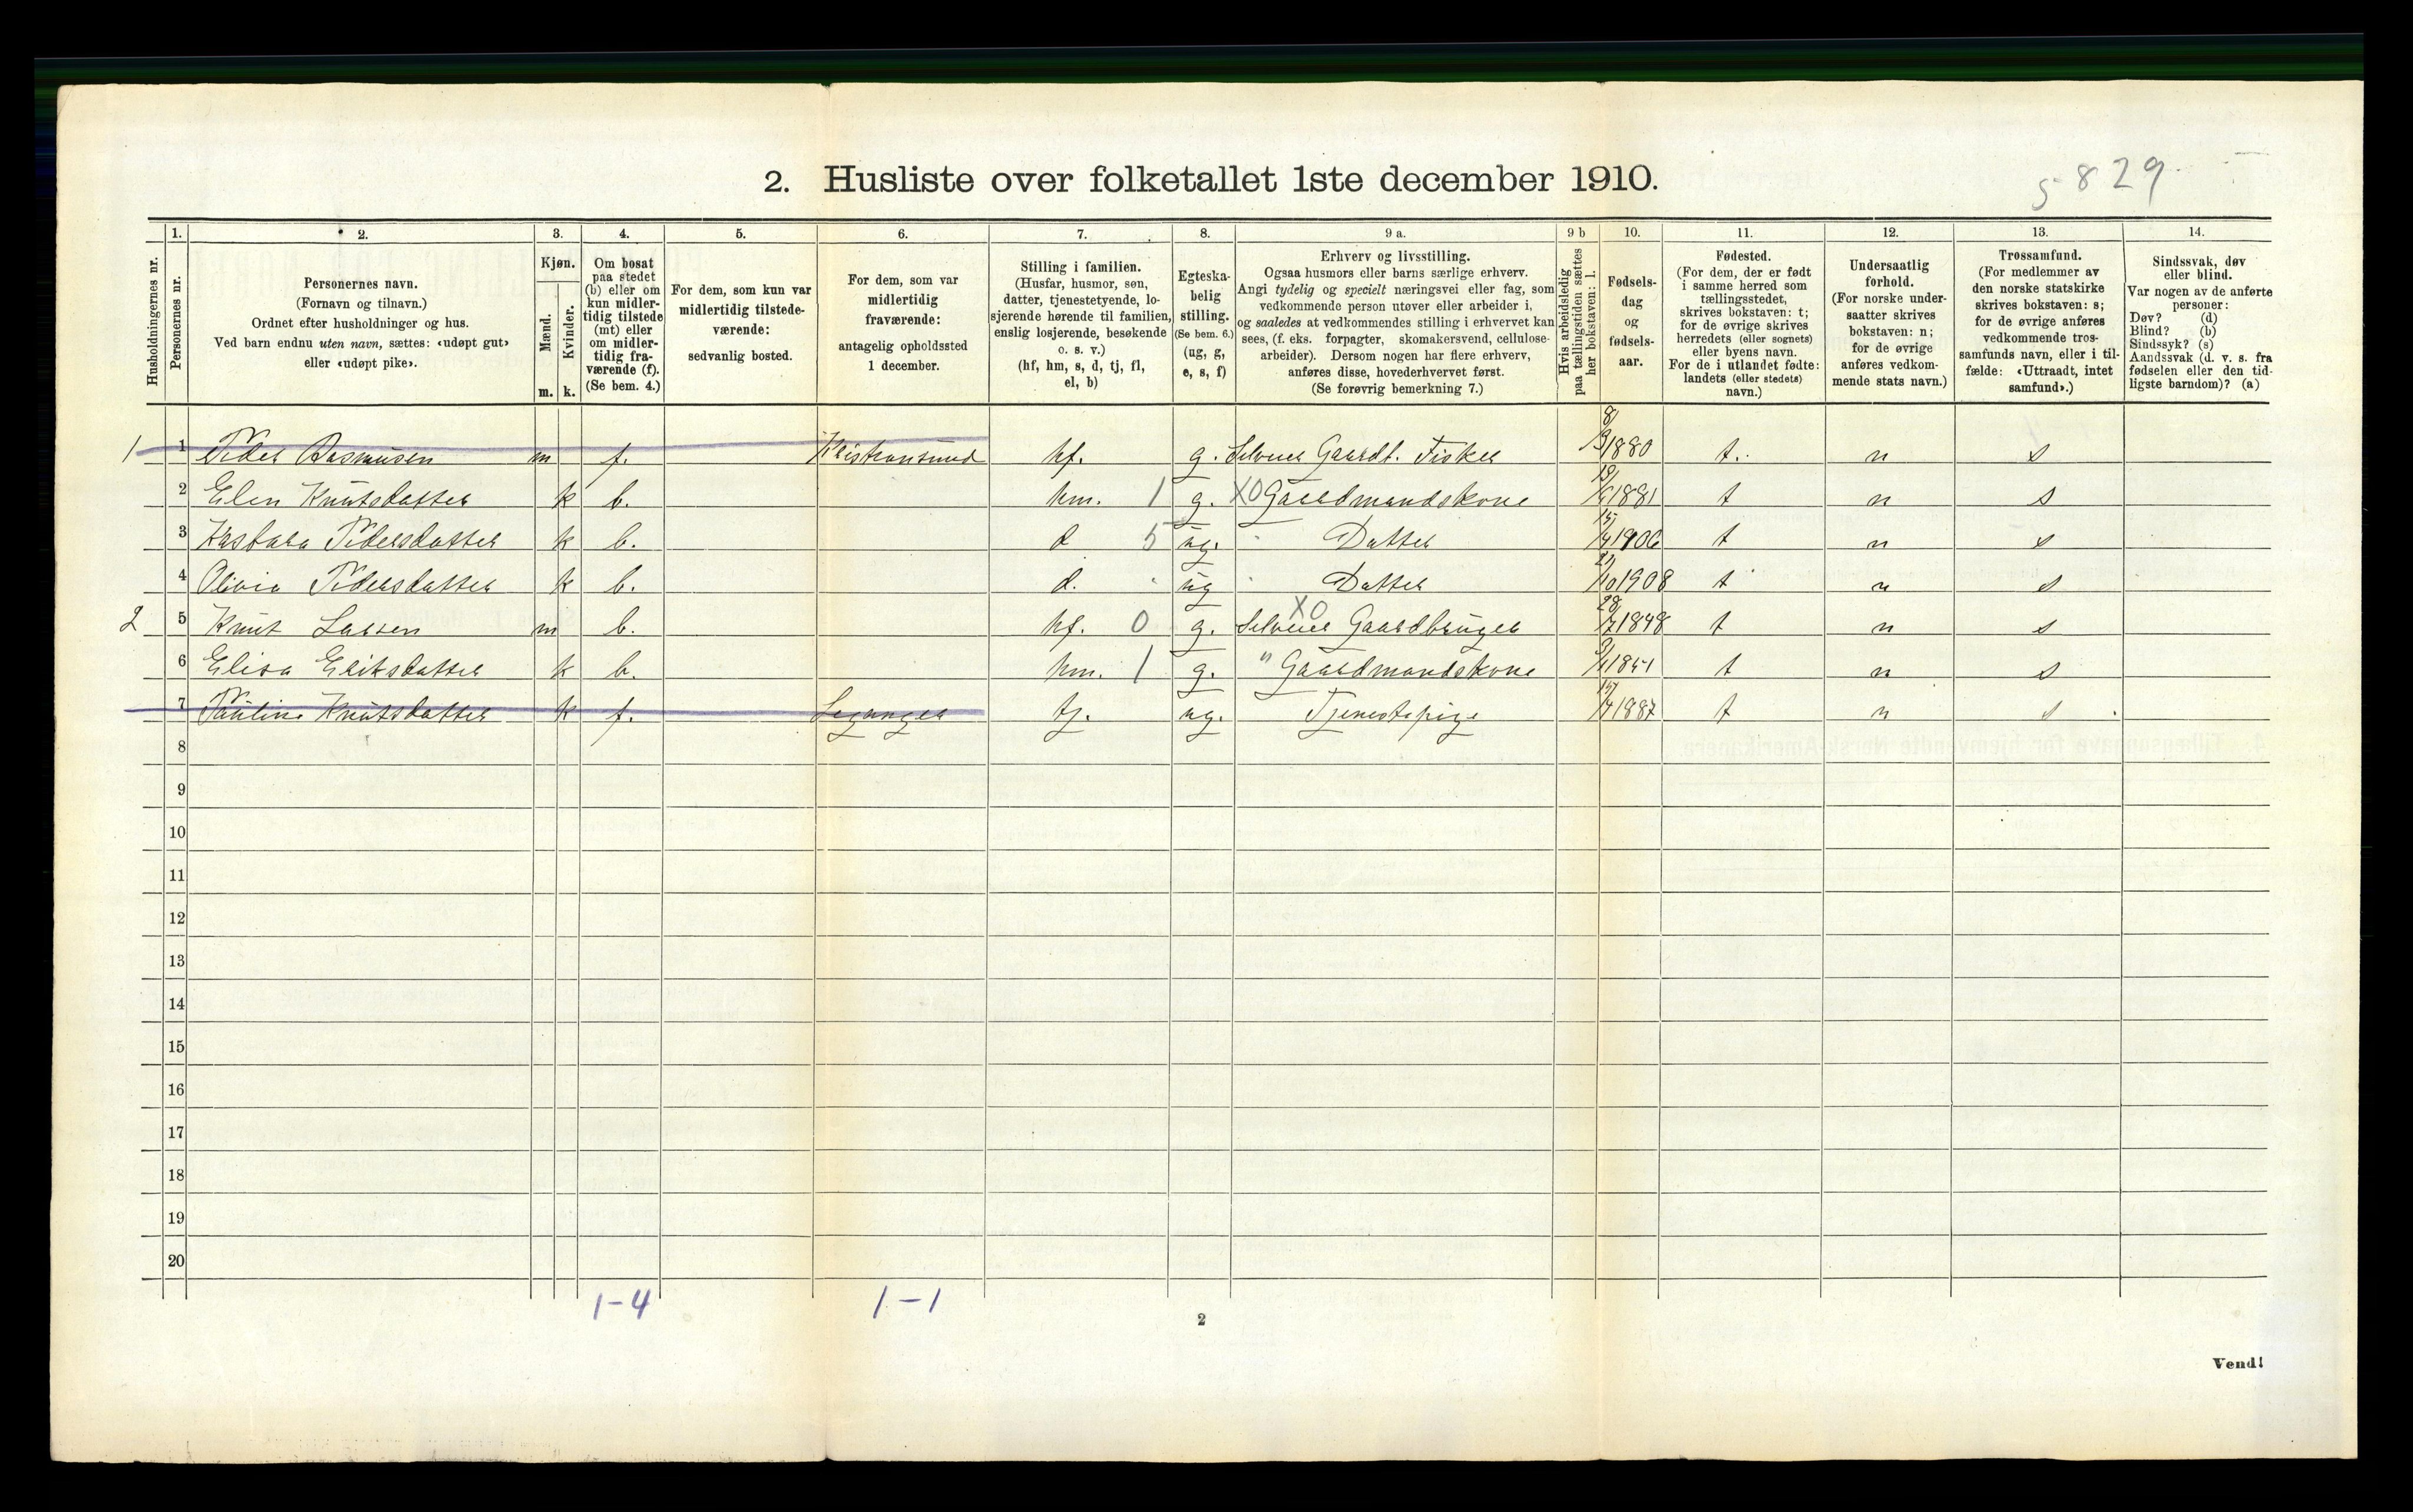 2. Husliste over folketallet 1ste december 1910.
5829
Husholdningernes nr.
1.
Personernes nr.
2.
Personernes navn.
(Fornavn og tilnavn.)
Ordnet efter husholdninger og hus.
Ved barn endnu uten navn, sættes: «udøpt gut»
eller «udøpt pike».
3.
Kjøn.
Mænd.
Kvinder.
m. k.
4.
Om bosat
paa stedet
(b) eller om
kun midler-
tidig tilstede
(mt) eller
om midler-
tidig fra-
værende (f).
(Se bem. 4.)
5.
For dem, som kun var
midlertidig tilstede-
værende:
sedvanlig bosted.
6.
For dem, som var
midlertidig
fraværende:
antagelig opholdssted
1 december.
7.
Stilling i familien.
(Husfar, husmor, søn,
datter, tjenestetyende, lo-
sjerende hørende til familien,
enslig losjerende, besøkende
o. s. v.)
(hf, hm, s, d, tj, fl,
el, b)
8.
Egteska-
belig
stilling.
(Se bem. 6.)
(ug, g,
e, s, f)
9 a.
Erhverv og livsstilling.
Ogsaa husmors eller barns særlige erhverv.
Angi tydelig og specielt næringsvei eller fag, som
vedkommende person utøver eller arbeider i,
og saaledes at vedkommendes stilling i erhvervet kan
sees, (f. eks. forpagter, skomakersvend, cellulose-
arbeider). Dersom nogen har flere erhverv,
anføres disse, hovederhvervet først.
(Se forøvrig bemerkning 7.)
9 b
Hvis arbeidsledig
paa tællingstiden sættes
her bokstaven: l.
10.
Fødsels-
dag
og
fødsels-
aar.
11.
Fødested.
(For dem, der er født
i samme herred som
tællingsstedet,
skrives bokstaven: t;
for de øvrige skrives
herredets (eller sognets)
eller byens navn.
For de i utlandet fødte:
landets (eller stedets)
navn.)
12.
Undersaatlig
forhold.
(For norske under-
saatter skrives
bokstaven: n;
for de øvrige
anføres vedkom-
mende stats navn.)
13.
Trossamfund.
(For medlemmer av
den norske statskirke
skrives bokstaven: s;
for de øvrige anføres
vedkommende tros-
samfunds navn, eller i til-
fælde: «Uttraadt, intet
samfund».)
14.
Sindssvak, døv
eller blind.
Var nogen av de anførte
personer:
Døv? (d)
Blind? (b)
Sindssyk? (s)
Aandssvak (d. v. s. fra
fødselen eller den tid-
ligste barndom)? (a)
1 1 Peder Rasmusen m f. Kristiansund hf. g. Selveier Gaardb. Fisker 1880 t. n s
2 Elen Knutsdatter k b. hm. 1 g. XO Gaardmandskone 1881 t n s
3 Pedersdatter k b. d 5 ug. Datter 1906 t n s
4 Olivia Pedersdatter k b. d. ug Datter 1908 t n s
2 5 Knut Larsen m b. hf. 0 g. XO Selveier Gaardbruger 28/7 1848 t n s
6 Elisa Eriksdatter k b. hm. 1 g. " Gaardmandskone t n s
7 Pauline Knutsdatter k f. tj. ug. Tjenestepige 1887 t n s
8
9
10
11
12
13
14
15
16
17
18
19
20
1-4 1-1
2
Vend!